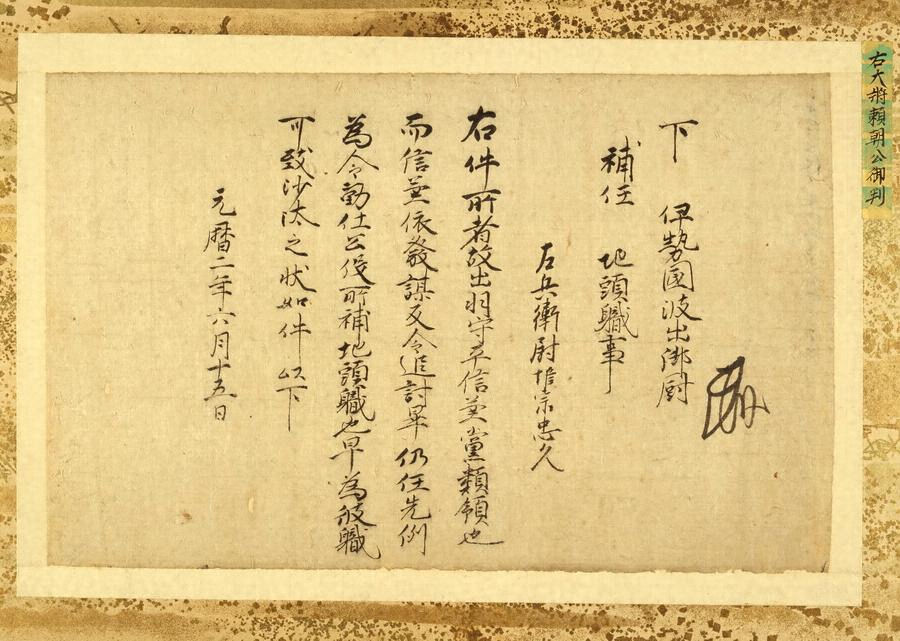 右大将頼朝公御判
下　伊勢國波出御厨
補任　地頭職事
左兵衛尉惟宗忠久
右件所者故出羽守平信兼黨類領也
而信兼依發謀反令追討畢仍任先例
為令勤仕公役所補地頭職也早為彼職
可致沙汰之状如件以下
元暦二年六月十五日